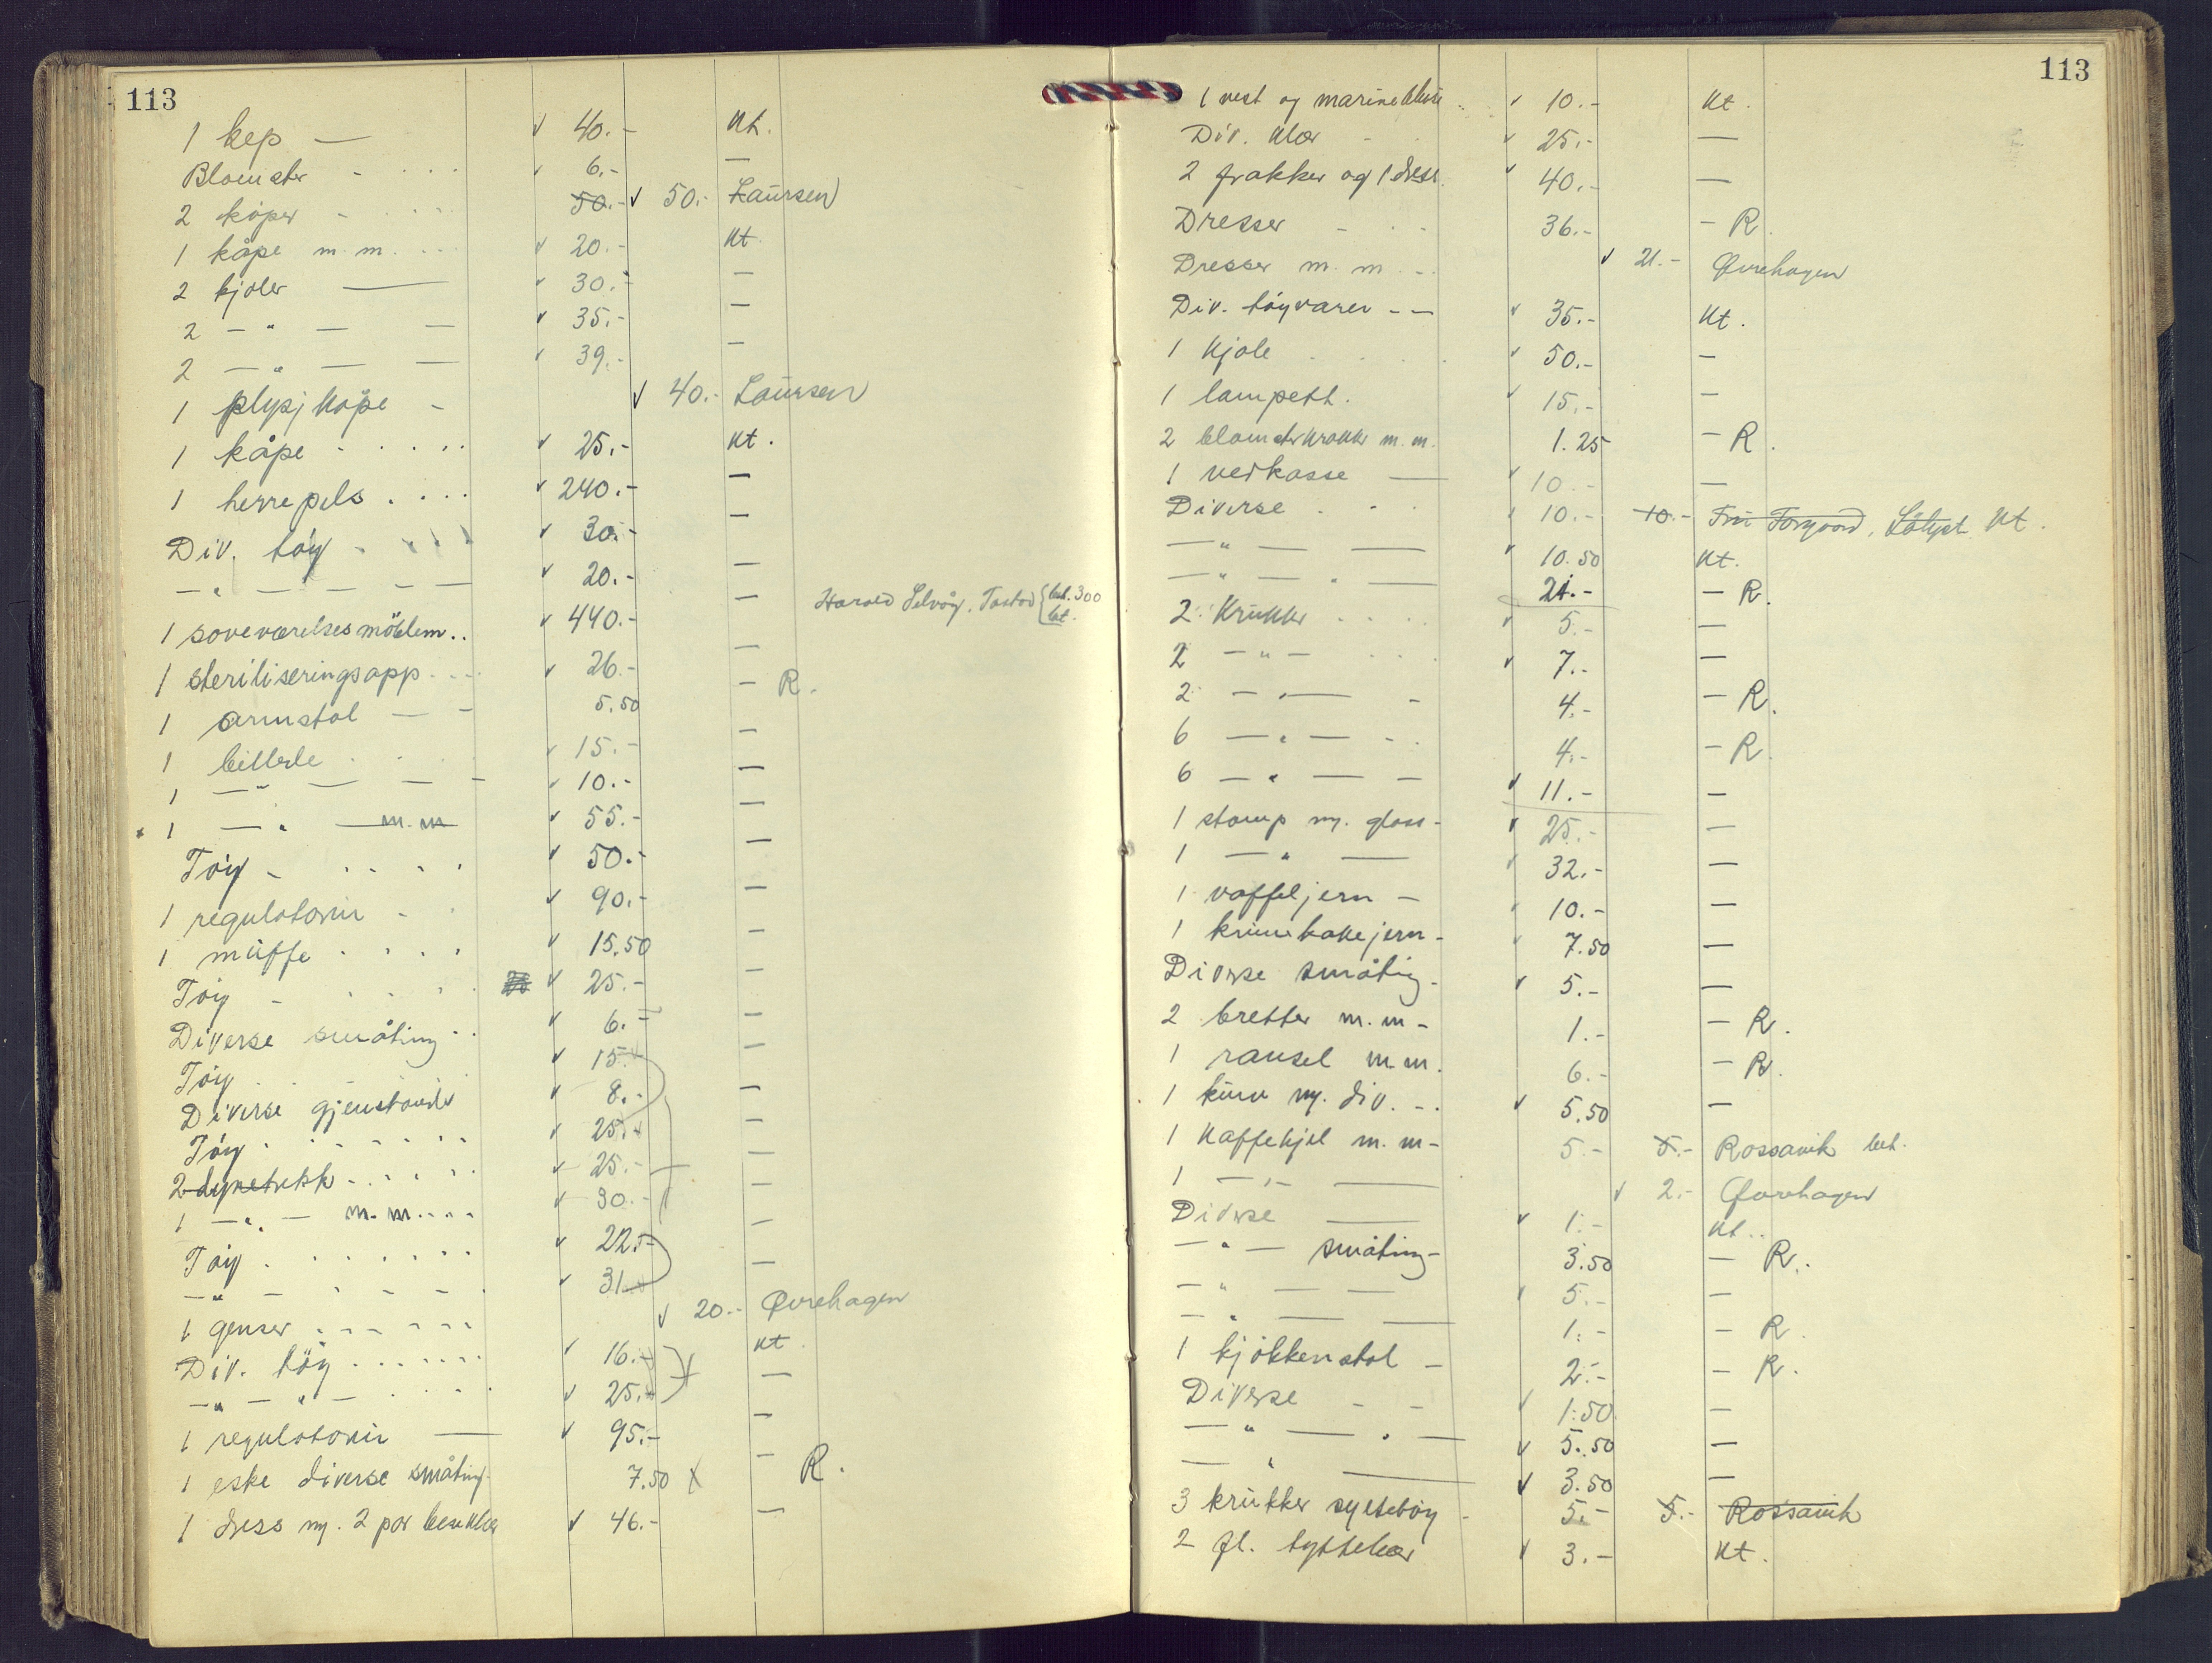 113
1 kep — ✓ 40.- kt.
Blomster - ... ✓ 6.- —
2 kåper - ... 50.- ✓ 50.- Laursen
1 kåpe m. m. ... ✓ 20.- kt.
2 kjoler — ✓ 30.- —
2 — " — — ✓ 35.- —
2 — " — — ✓ 39.- —
1 plysj kåpe - ✓ 40.- Laursen
1 kåpe ..... ✓ 25.- kt.
1 herrepels .... ✓ 240.- —
Div. tøy - ✓ 30.- —
— " — — — — ✓ 20.- —
1 soveværelsesmöblem.. ✓ 440.- — Harald Selvåg, Tastad { bet. 300 bet.
1 steriliseringsapp. ... ✓ 26.- —
1 armstol — - 5.50 — R.
1 billede ... ✓ 15.- —
1 — " — — - ✓ 10.- —
1 — " — m. m ✓ 55.- —
Töy - .... ✓ 50.- —
1 regulatorur - . ✓ 90.- —
1 muffe .... ✓ 15.50 —
Töy - .... ✓ 25.- —
Diverse småting .. ✓ 6.- —
Töy .. ✓ 15.- —
Diverse gjenstander ✓ 8.- —
Töy ...... ✓ 25.- —
2 dynetrekk ..... ✓ 25.- —
1 — " — m. m. ... ✓ 30.- —
Töy ...... ✓ 22.- —
— " — - - - - . ✓ 31.- —
1 genser ...... ✓ 20.- Øvrehagen
Div. töy ...... ✓ 16.- kt.
— " — " — .... ✓ 25.- —
1 regulatorur — ✓ 95.- —
1 eske diverse småting. 7.50 X — R.
1 dress m. 2 par benklær ✓ 46.- —
113
1 vest og marinebluse .. ✓ 10.- kt.
Div. klær - ✓ 25.- —
2 frakker og 1 dress. ✓ 40.- —
Dresser - .. 36.- — R.
Dresser m. m. - ✓ 21.- Øvrehagen
Div. töyvarer - — ✓ 35.- kt.
1 kjole .... ✓ 50.- —
1 lampett. ✓ 15.- —
2 blomsterkrukker m. m. 1.25 — R.
1 vedkasse — ✓ 10.- —
Diverse ... ✓ 10.- 10.- Fru kt.
— " — — ✓ 10.50 kt.
— " — " — 21.- — R.
2 Krukker .... ✓ 5.- —
2 — " — ... ✓ 7.- —
2 — " — - 4.- — R.
6 — " — - . 4.- — R.
6 — " — — ✓ 11.- —
1 stamp m. glass - ✓ 25.- —
1 — " — ✓ 32.- —
1 vaffeljern — ✓ 10.- —
1 krumkakejern - ✓ 7.50 —
Diverse småting - ✓ 5.- —
2 bretter m. m - 1.- — R.
1 ransel m. m. 6.- — R.
1 kurv m. div. - . ✓ 5.50 —
1 kaffekjel m. m - 5.- 5.- Rossavik bet.
1 — " — — ✓ 2.- Øvrehagen
Diverse — ✓ 1.- kt..
— " — småting - 3.50 — R.
— " — — ✓ 5.- —
— " — — 1.- — R.
1 kjökkenstol — 2.- — R.
Diverse - - ✓ 1.50 —
— " — " — ✓ 5.50 —
— " — ✓ 3.50 —
3 krukker syltetöy - 5.- 5.- Rossavik
2 fl. tyttebær ✓ 3.- kt.